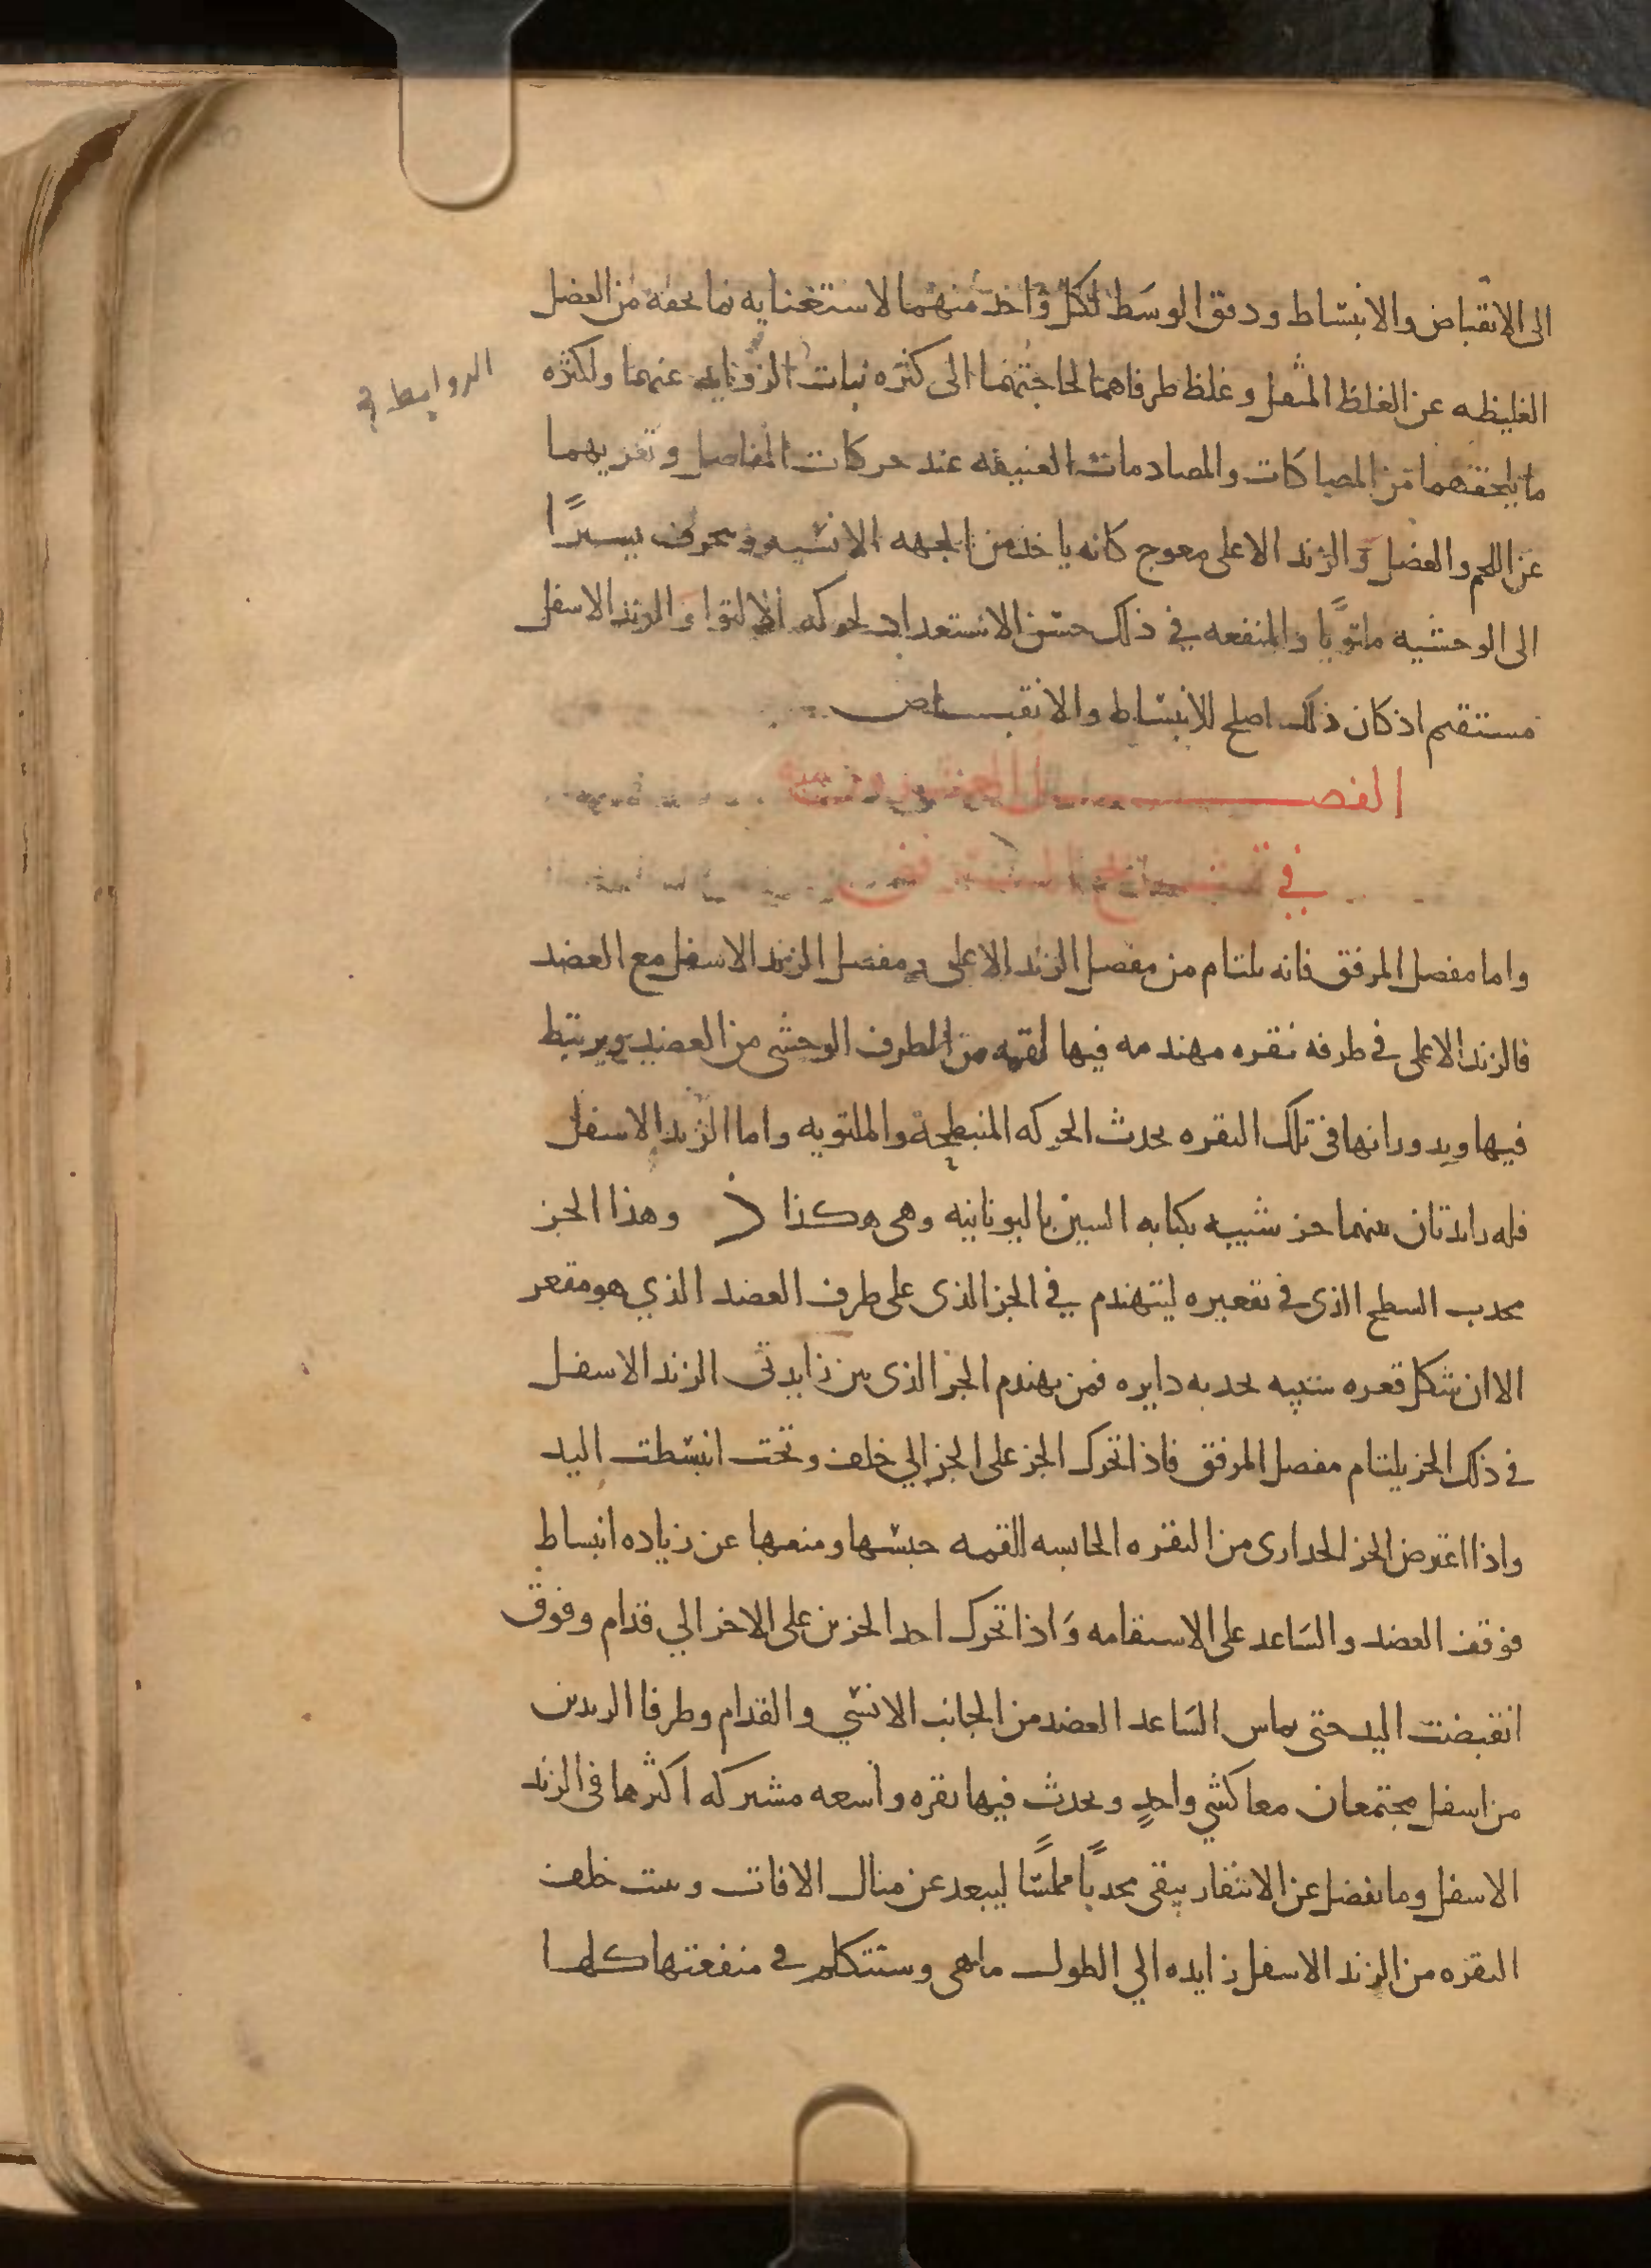 الى الانقباض والانبساط ودقق الوسط لكل واحد منهما لاستغنايه بما يحفه من العضل
الغليظه عن الغلظ المثقل وغلظ طرفاهما لحاجتهما الى كثره نبات الروابط عنهما ولكثره
الروابط
ما يلحقهما من المصاكات والمصادمات العنيفه عند حركات المفاصل وتعريهما
عن اللحم والعضل والزند الاعلى معوج كانه ياخذ من الجهه الانسيه وينحرف يسيرًا
الى الوحشيه ملتويًا والمنفعه في ذلك حسن الاستعداد لحركه الالتوا والزند الاسفل
مستقيم اذ كان ذلك اصلح للانبساط والانقباض
الفصل
في تشريح المرفق
واما مفصل المرفق فانه يلتام من مفصل الزند الاعلى ومفصل الزند الاسفل مع العضد
فالزند الاعلى في طرفه نقره مهندمه فيها لقمه من الطرف الوحشي من العضد ويرتبط
فيها وبدورانها في تلك النقره يحدث الحركه المنبطحة والملتويه واما الزند الاسفل
فله زايدتان بينهما حز شبيه بكتابه السين باليونانيه وهى هكذا وهذا الحز
محدب السطح الذى في تقعيره ليتهندم في الحز الذى على طرف العضد الذي هو مقعر
الا ان شكل قعره شبيه بحدبه دايره فمن تهندم الحز الذى بين زايدتى الزند الاسفل
في ذلك الحز يلتام مفصل المرفق فاذا تحرك الحز على الحز الي خلف وتحت انبسطت اليد
واذا اعترض الحز الجدارى من النقره الحابسه للقمه حبسها ومنعها عن زياده انبساط
فوقف العضد والساعد على الاستقامه واذا تحرك احد الحزين على الاخر الي قدام وفوق
انقبضت اليد حتى يماس الساعد العضد من الجانب الانسي والقدام وطرفا الزندين
من اسفل مجتمعان معا كشي واحدٍ ويحدث فيها نقره واسعه مشتركه اكثرها فى الزند
الاسفل وما يفضل عن الانتقار يبقى محدبًا مملسًا ليبعد عن منال الافات وينبت خلف
النقره من الزند الاسفل زايده الي الطول ما هى وسنتكلم في منفعتها كلها